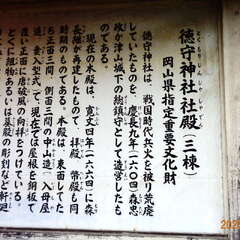 とくもりじんじゃしゃでん
徳守神社社殿(三棟)
岡山県指定重要文化財
徳守神社は、戦国時代兵火を被り荒廃
していたものを、慶長九年(一六〇四)森忠
政が津山城下の総鎮守として造営したも
のである。
現在の本殿は、寛文四年(一六六四)に森
長継が再建したもので、拝殿 幣殿も同
時期のものである。本殿は、東面してた
ち正面三間、側面三間の中山造(入母屋
造、妻入型式)で、現在では屋根を銅板で
正面に唐破風の向拝をつけている。
どに組物あるいは蟇股の彫刻など軒廻